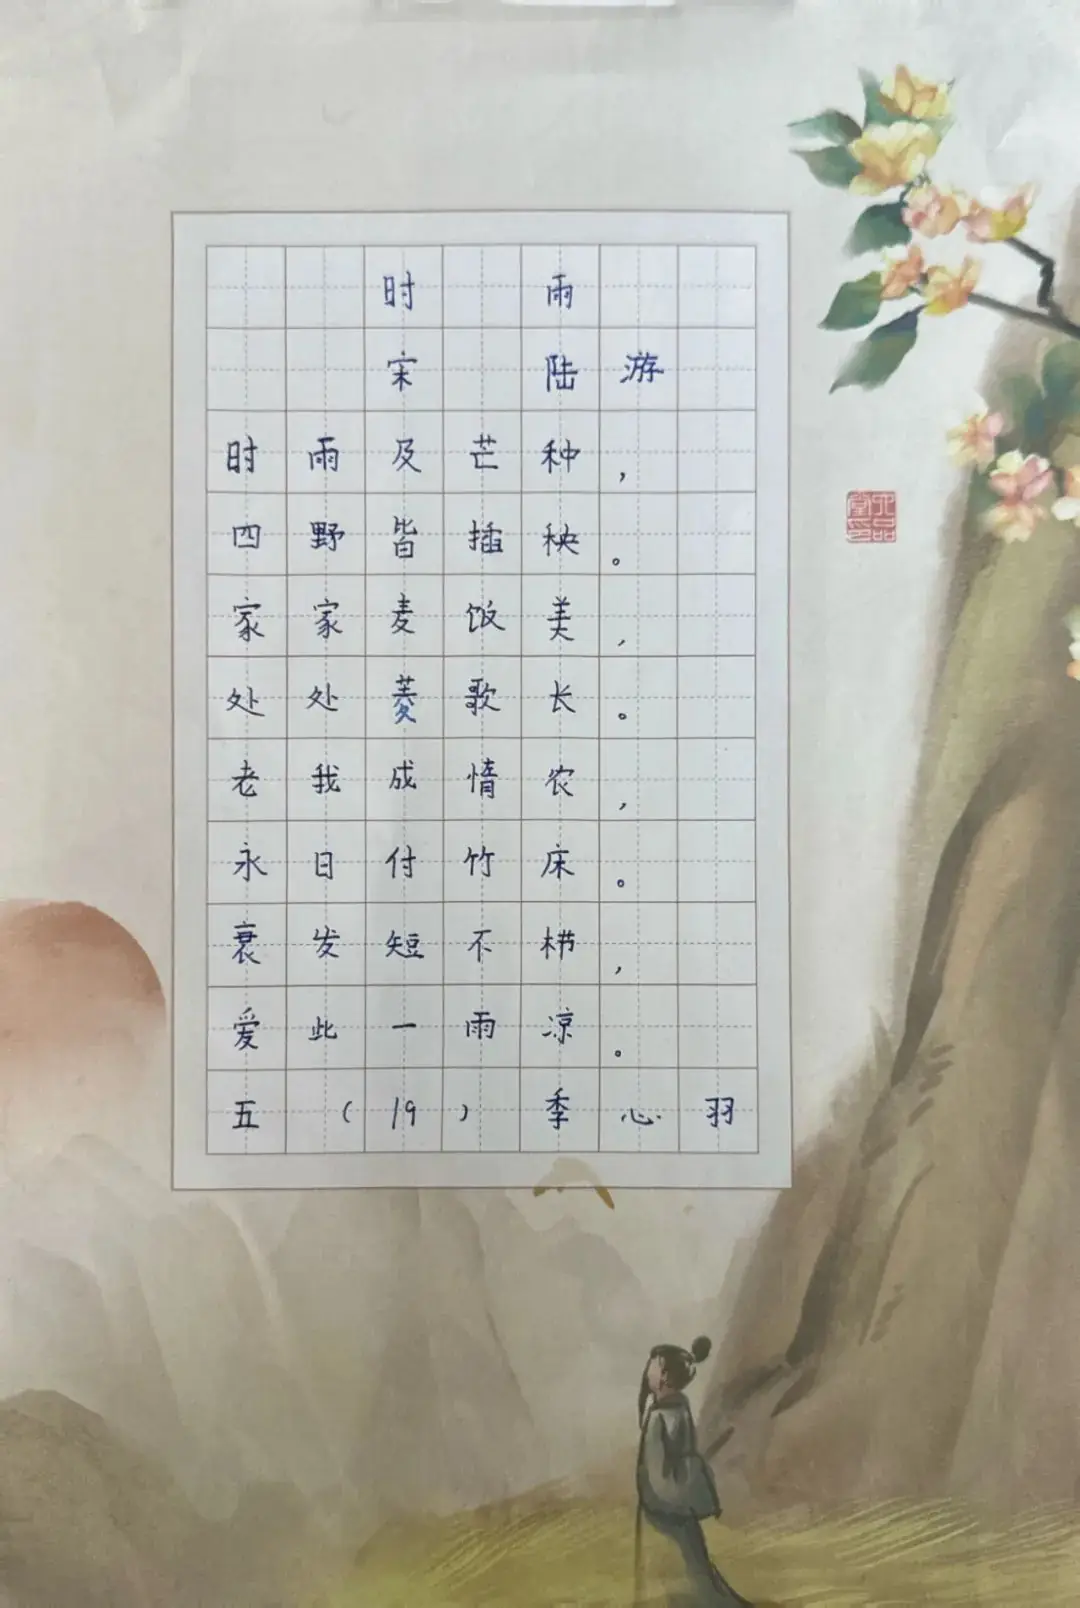 时 雨
宋 陆游
时雨及芒种，
四野皆插秧。
家家麦饭美，
处处菱歌长。
老我成惰农，
永日付竹床。
衰发短不栉，
爱此一雨凉。
五（19）季心羽